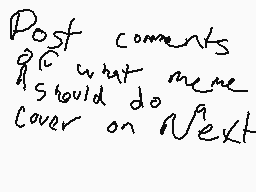 Post comments
of what meme
I should do a
cover on Next